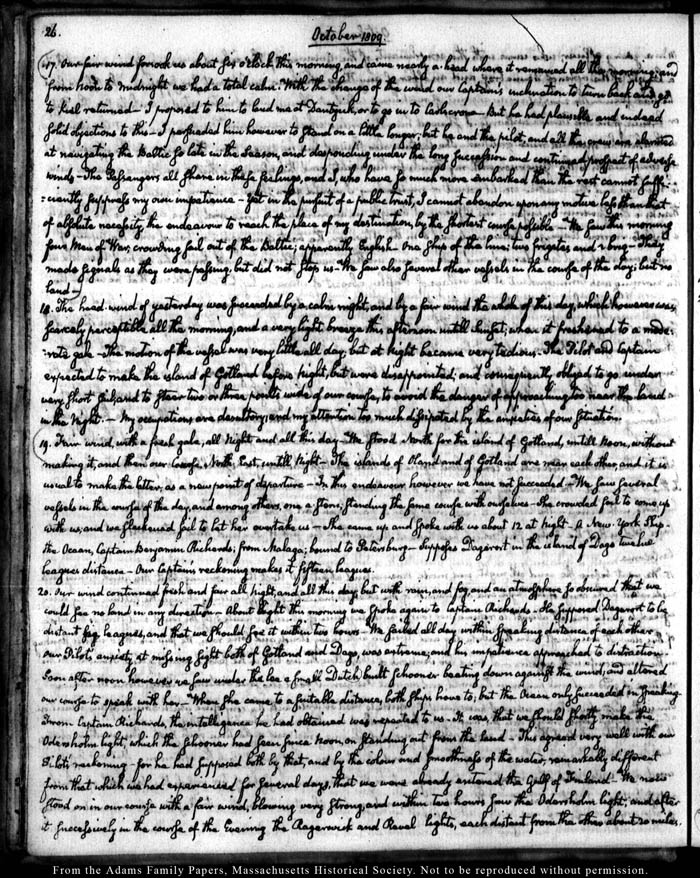 26.
October 1809.
17. Our fair wind forsook us about six o'clock this morning, and came nearly a-head where it remained all the morning, and
from Noon to midnight we had a total calm. With the change of the wind our Captain's inclination to turn back and go
to Kiel returned — I proposed to him to land me at Dantzick, or to go in to Carlscrona — But he had plausible and indeed
solid objections to this — I persuaded him however to stand on a little longer; but he and the pilot, and all the crew are alarmed
at navigating the Baltic so late in the Season, and desponding under the long succession and continued prospect of adverse
winds — The Passengers all share in these feelings, and I, who have so much more embarked than the rest cannot suffi-
-ciently suppress my own impatience — Yet in the pursuit of a public trust, I cannot abandon upon any motive less than that
of absolute necessity, the endeavour to reach the place of my destination, by the shortest course possible — We saw this morning
four Men of War, crowding sail out of the Baltic; apparently English. One ship of the line; two frigates and a brig — They
made signals as they were passing, but did not stop us — We saw also several other vessels in the course of the day; but no
land —
18. The head-wind of yesterday was succeeded by a calm night, and by a fair wind the whole of this day, which however was
scarcely perceptible all the morning, and a very light breeze this afternoon untill Night; when it freshened to a mode-
-rate gale — The motion of the vessel was very little all day, but at Night became very tedious. The Pilot and Captain
expected to make the island of Gotland before Night, but were disappointed; and consequently obliged to go under
very short sail, and to steer two or three points wide of our course, to avoid the danger of approaching too near the land
in the Night. — My occupations are desultory, and my attention too much dissipated by the anxieties of our situation.
19. Fair wind, with a fresh gale, all Night and all this day — We stood North for the island of Gotland, untill Noon, without
making it, and then our course North, East, untill Night — The islands of Oland and of Gotland are near each other, and it is
usual to make the latter, as a new point of departure — In this endeavour however we have not succeeded — We saw several
vessels in the course of the day, and among others, one a Stern, standing the same course with ourselves — She crowded sail to come up
with us, and we slackened sail to let her overtake us — She came up and spoke with us about 12 at Night. A New-York Ship.
the Ocean, Captain Benjamin Richards; from Malaga; bound to Petersburg — supposes Dagerort in the island of Dago twelve
leagues distance — Our Captain's reckoning makes it fifteen leagues.
20. Our wind continued fresh and fair all Night, and all this day; but with rain, and fog, and an atmosphere so obscured that we
could see no land in any direction — About eight this morning we spoke again to Captain Richards. He supposed Dagerort to be
distant six leagues, and that we should see it within two hours — We sailed all day within speaking distance of each other,
our Pilot's anxiety, at missing sight both of Gotland and Dago, was extreme, and his impatience approached to distraction.
Soon after noon however we saw under the lee a small Dutch built schooner beating down against the wind; and altered
our course to speak with her. — When she came to a suitable distance, both ships hove to; but the Ocean only succeeded in speaking.
From Captain Richards, the intelligence he had obtained was repeated to us — It was, that we should shortly make the
Odensholm light, which the schooner had seen since Noon, on standing out from the land — This agreed very well with our
Pilot's reckoning — for he had supposed both by that, and by the colour and smoothness of the water, remarkably different
from that which we had experienced for several days, that we were already entered the Gulf of Finland — We now
stood on in our course with a fair wind, blowing very strong, and within two hours saw the Odensholm light, and after
it successively in the course of the Evening the Rogerwick and Revel lights, each distant from the other about 20 miles.
From the Adams Family Papers, Massachusetts Historical Society. Not to be reproduced without permission.